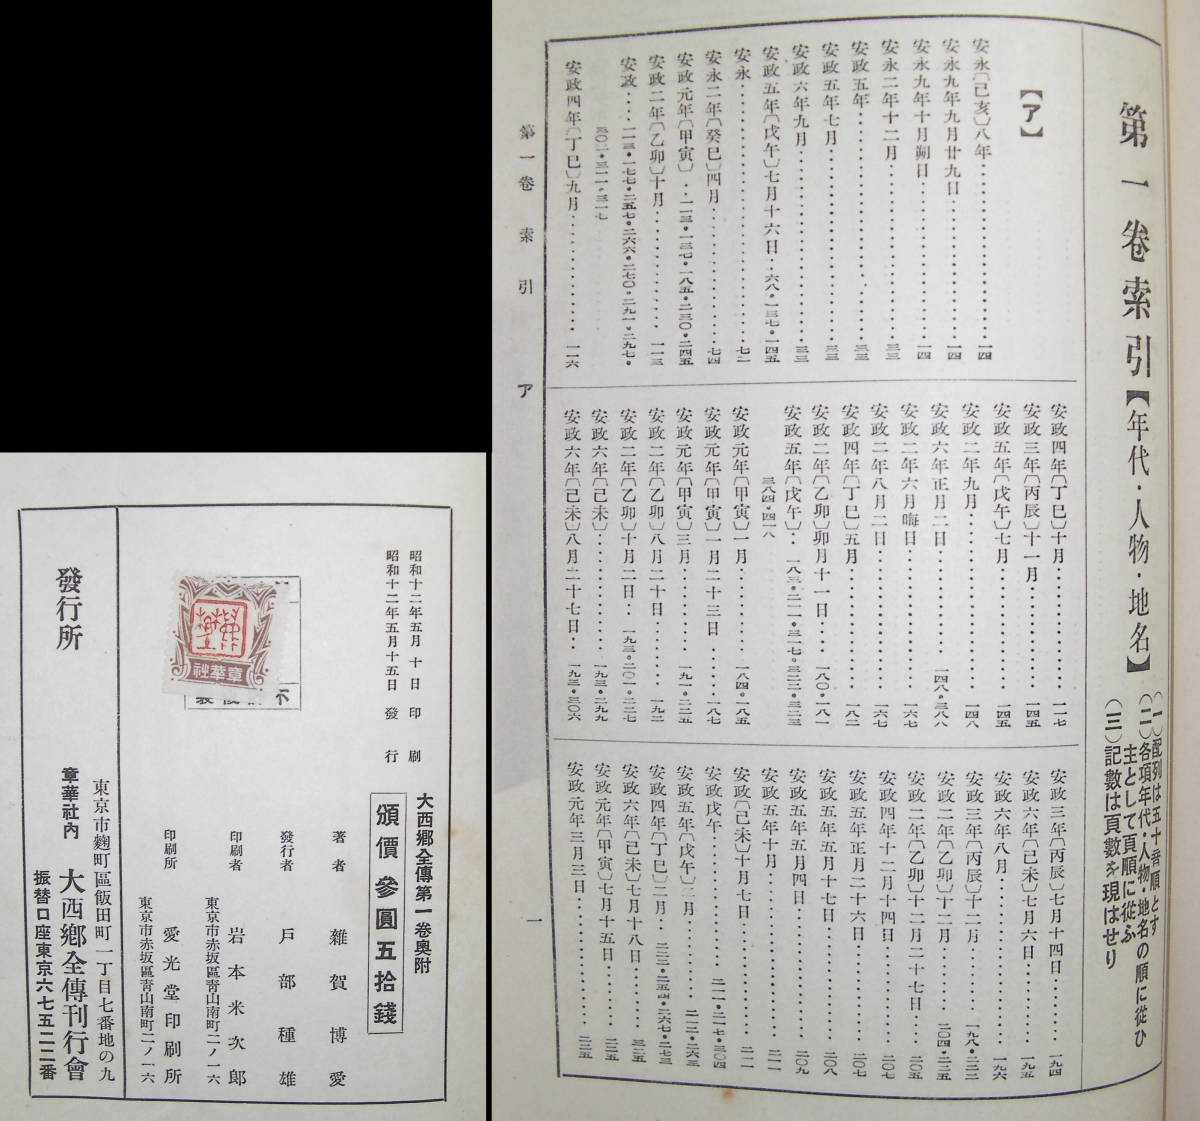 第一卷索引【年代・人物・地名】
(一)配列は五十音順とす
(二)各項年代・人物・地名の順に從ひ
主として頁順に從ふ
(三)記數は頁數を現はせり
【ア】
安永〔己亥〕八年 一四
安永九年九月廿九日 一四
安永九年十月朔日 一四
安永二年十二月 三三
安政五年 三三
安政五年七月 三三
安政六年九月 三三
安政五年〔戊午〕七月十六日 六八・一三七・一四五
安永 七二
安永二年〔癸巳〕四月 七四
安政元年〔甲寅〕 一一三・一三七・一八五・二三〇・二四五
安政二年〔乙卯〕十月 一一三
安政 一一三・一七七・二五七・二六六・二七〇・二九一・二九七・
三〇二・三一一・三一七
安政四年〔丁巳〕九月 一一六
安政四年〔丁巳〕十月 一一七
安政三年〔丙辰〕十一月 一四五
安政五年〔戊午〕七月 一四五
安政二年九月 一四八
安政六年正月二日 一四八・三八八
安政二年六月晦日 一六七
安政二年八月二日 一六七
安政四年〔丁巳〕五月 一八二
安政二年〔乙卯〕卯月十一日 一八〇・一八一
安政五年〔戊午〕 一八三・二一一・三一七・三二二・三二三
三八四・四一八
安政元年〔甲寅〕一月 一八四・一八五
安政元年〔甲寅〕一月二十三日 一八七
安政元年〔甲寅〕三月 一九一・二二五
安政二年〔乙卯〕八月二十日 一九二
安政二年〔乙卯〕十月二日 一九三・二〇一・二二七
安政六年〔己未〕 一九三・二九九
安政六年〔己未〕八月二十七日 一九三・三〇六
安政三年〔丙辰〕七月十四日 一九四
安政六年〔己未〕七月六日 一九五
安政六年八月 一九六
安政三年〔丙辰〕十二月 一九八・二二二
安政二年〔乙卯〕十二月 二〇四・二三五
安政二年〔乙卯〕十二月二十七日 二〇五
安政四年十二月十四日 二〇七
安政五年正月二十六日 二〇七
安政五年五月十七日 二〇八
安政五年五月四日 二〇九
安政五年十月 二一一
安政〔己未〕十月七日 二一一
安政戊午 二一一・二一七・三〇四
安政五年〔戊午〕二月 二一二・二六三
安政四年〔丁巳〕二月 二二三・二五四・二六七・二七三
安政六年〔己未〕七月十八日 三二五
安政元年〔甲寅〕七月十五日 二二五
安政元年三月三日 二二五
第一卷 索引 ア
一
昭和十二年五月 十日 印刷
昭和十二年五月十五日 發行
章華社
大西鄕全傳第一卷奧附
頒價 參圓五拾錢
著者 雜賀博愛
發行者 戶部種雄
印刷者 岩本米次郎
東京市赤坂區靑山南町二ノ一六
印刷所 愛光堂印刷所
東京市赤坂區靑山南町二ノ一六
發行所
東京市麴町區飯田町一丁目七番地の九
章華社內 大西鄕全傳刊行會
振替口座東京六七五二二番